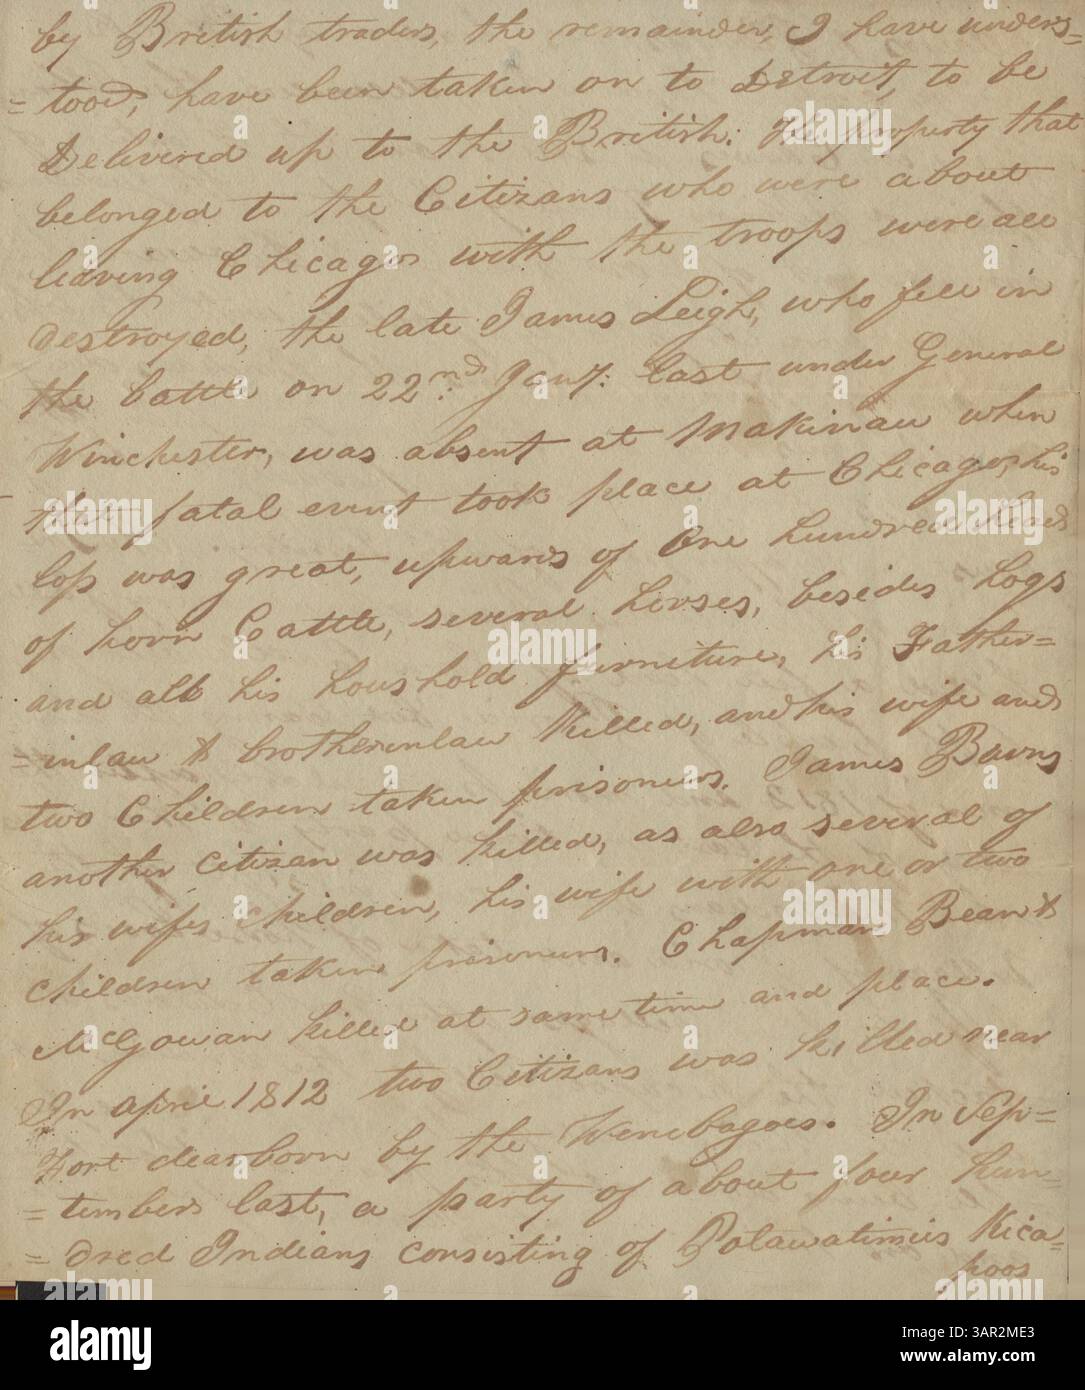 by British traders, the remainder, I have unders=
=tood, have been taken on to Detroit, to be
Delivered up to the British: the property that
belonged to the Citizans who were about
leaving Chicago with the troops were all
destroyed, the late James Leigh, who fell in
the battle on 22nd Jany: last under General
Winchester, was absent at Makinau when
that fatal event took place at Chicago, his
loss was great, upwards of One hundred head
of horn Cattle, several horses, besides hogs
and all his houshold furneture, his Father=
=inlaw & brotherinlaw killed, and his wife and
two Children taken prisoners. James Burns
another Citizan was killed, as also several of
his wifes children, his wife with one or two
children taken prisoners. Chapman Bean &
McGowan killed at same time and place.
In april 1812 two Citizans was killed near
Fort dearborn by the Wenebagoes. In Sep=
=tember last, a party of about four hun=
=dred Indians consisting of Potawatimies Kica=
poos
alamy
Image ID: 3AR2ME3
www.alamy.com